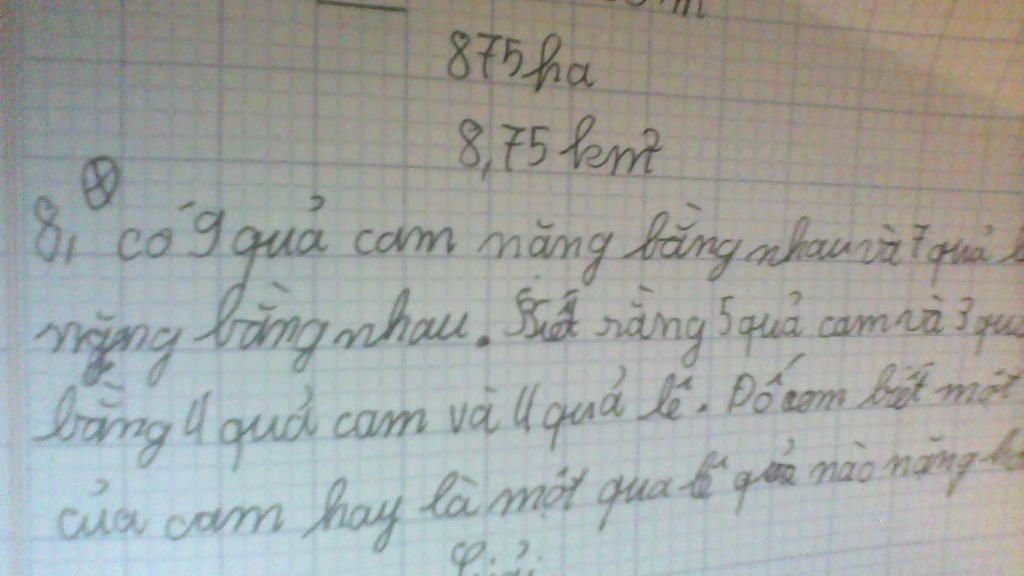 875ha
8,75 km²
8, có 9 quả cam nặng bằng nhau và 7 quả
nặng bằng nhau. Biết rằng 5 quả cam và 3
bằng 4 quả cam và 4 quả lê. Đố em biết một
của cam hay là một qua lê quả nào nặng
Giải